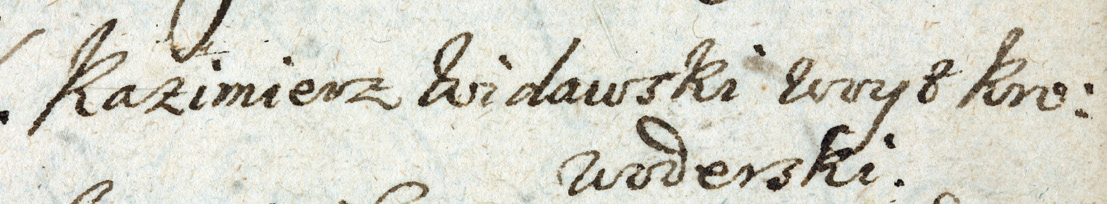 Kazimierz Widawski Woyt kro:
woderski.